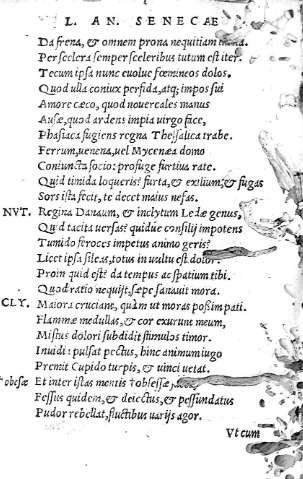 L. AN. SENECAE
Da frena, & omnem prona nequitiam
Per scelera semper sceleribus tutum est iter.
Tecum ipsa nunc euolue fœmineos dolos.
Quod ulla coniux perfida, atq; impos sui
Amore cæco, quod nouercales manus
Ausæ, quod ardens impia uirgo face,
Phasiaca fugiens regna Thessalica trabe.
Ferrum, uenena, uel Mycenæa domo
Coniuncta socio: profuge furtiua rate.
Quid timida loqueris? furta, & exilium, & fugas
Sors ista fecit, te decet maius nefas.
NVT. Regina Danaum, & inclytum Ledæ genus,
Quid tacita uersas? quidue consilij impotens
Tumido feroces impetus animo geris?
Licet ipsa sileas, totus in uultu est dolor.
Proin quid est? da tempus ac spatium tibi.
Quod ratio nequijt, sæpe sanauit mora.
CLY. Maiora cruciant, quàm ut moras possim pati.
Flammæ medullas, & cor exurunt meum,
Mistus dolori subdidit stimulos timor.
Inuidia pulsat pectus, hinc animum iugo
Premit Cupido turpis, & uinci uetat.
†obesæ Et inter istas mentis †obsessæ
Fessus quidem, & deiectus, & pessundatus
Pudor rebellat, fluctibus uarijs agor.
Vt cum